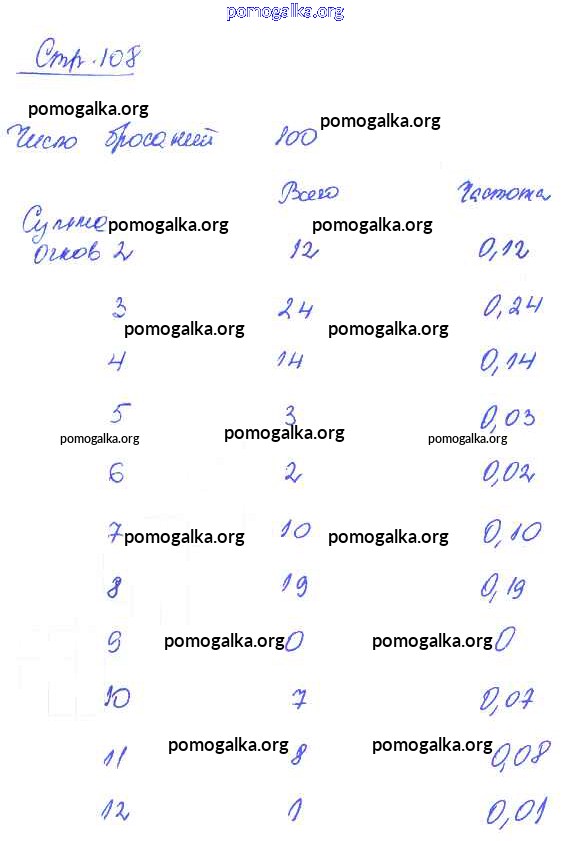 pomogalka.org
Стр. 108
pomogalka.org
Число бросаний 100 pomogalka.org
Всего Частота
Сумма pomogalka.org pomogalka.org
очков 2 12 0,12
3 24 0,24
pomogalka.org pomogalka.org
4 14 0,14
5 3 0,03
pomogalka.org pomogalka.org pomogalka.org
6 2 0,02
7 pomogalka.org 10 pomogalka.org 0,10
8 19 0,19
9 pomogalka.org 0 pomogalka.org 0
10 7 0,07
pomogalka.org pomogalka.org
11 8 0,08
12 1 0,01